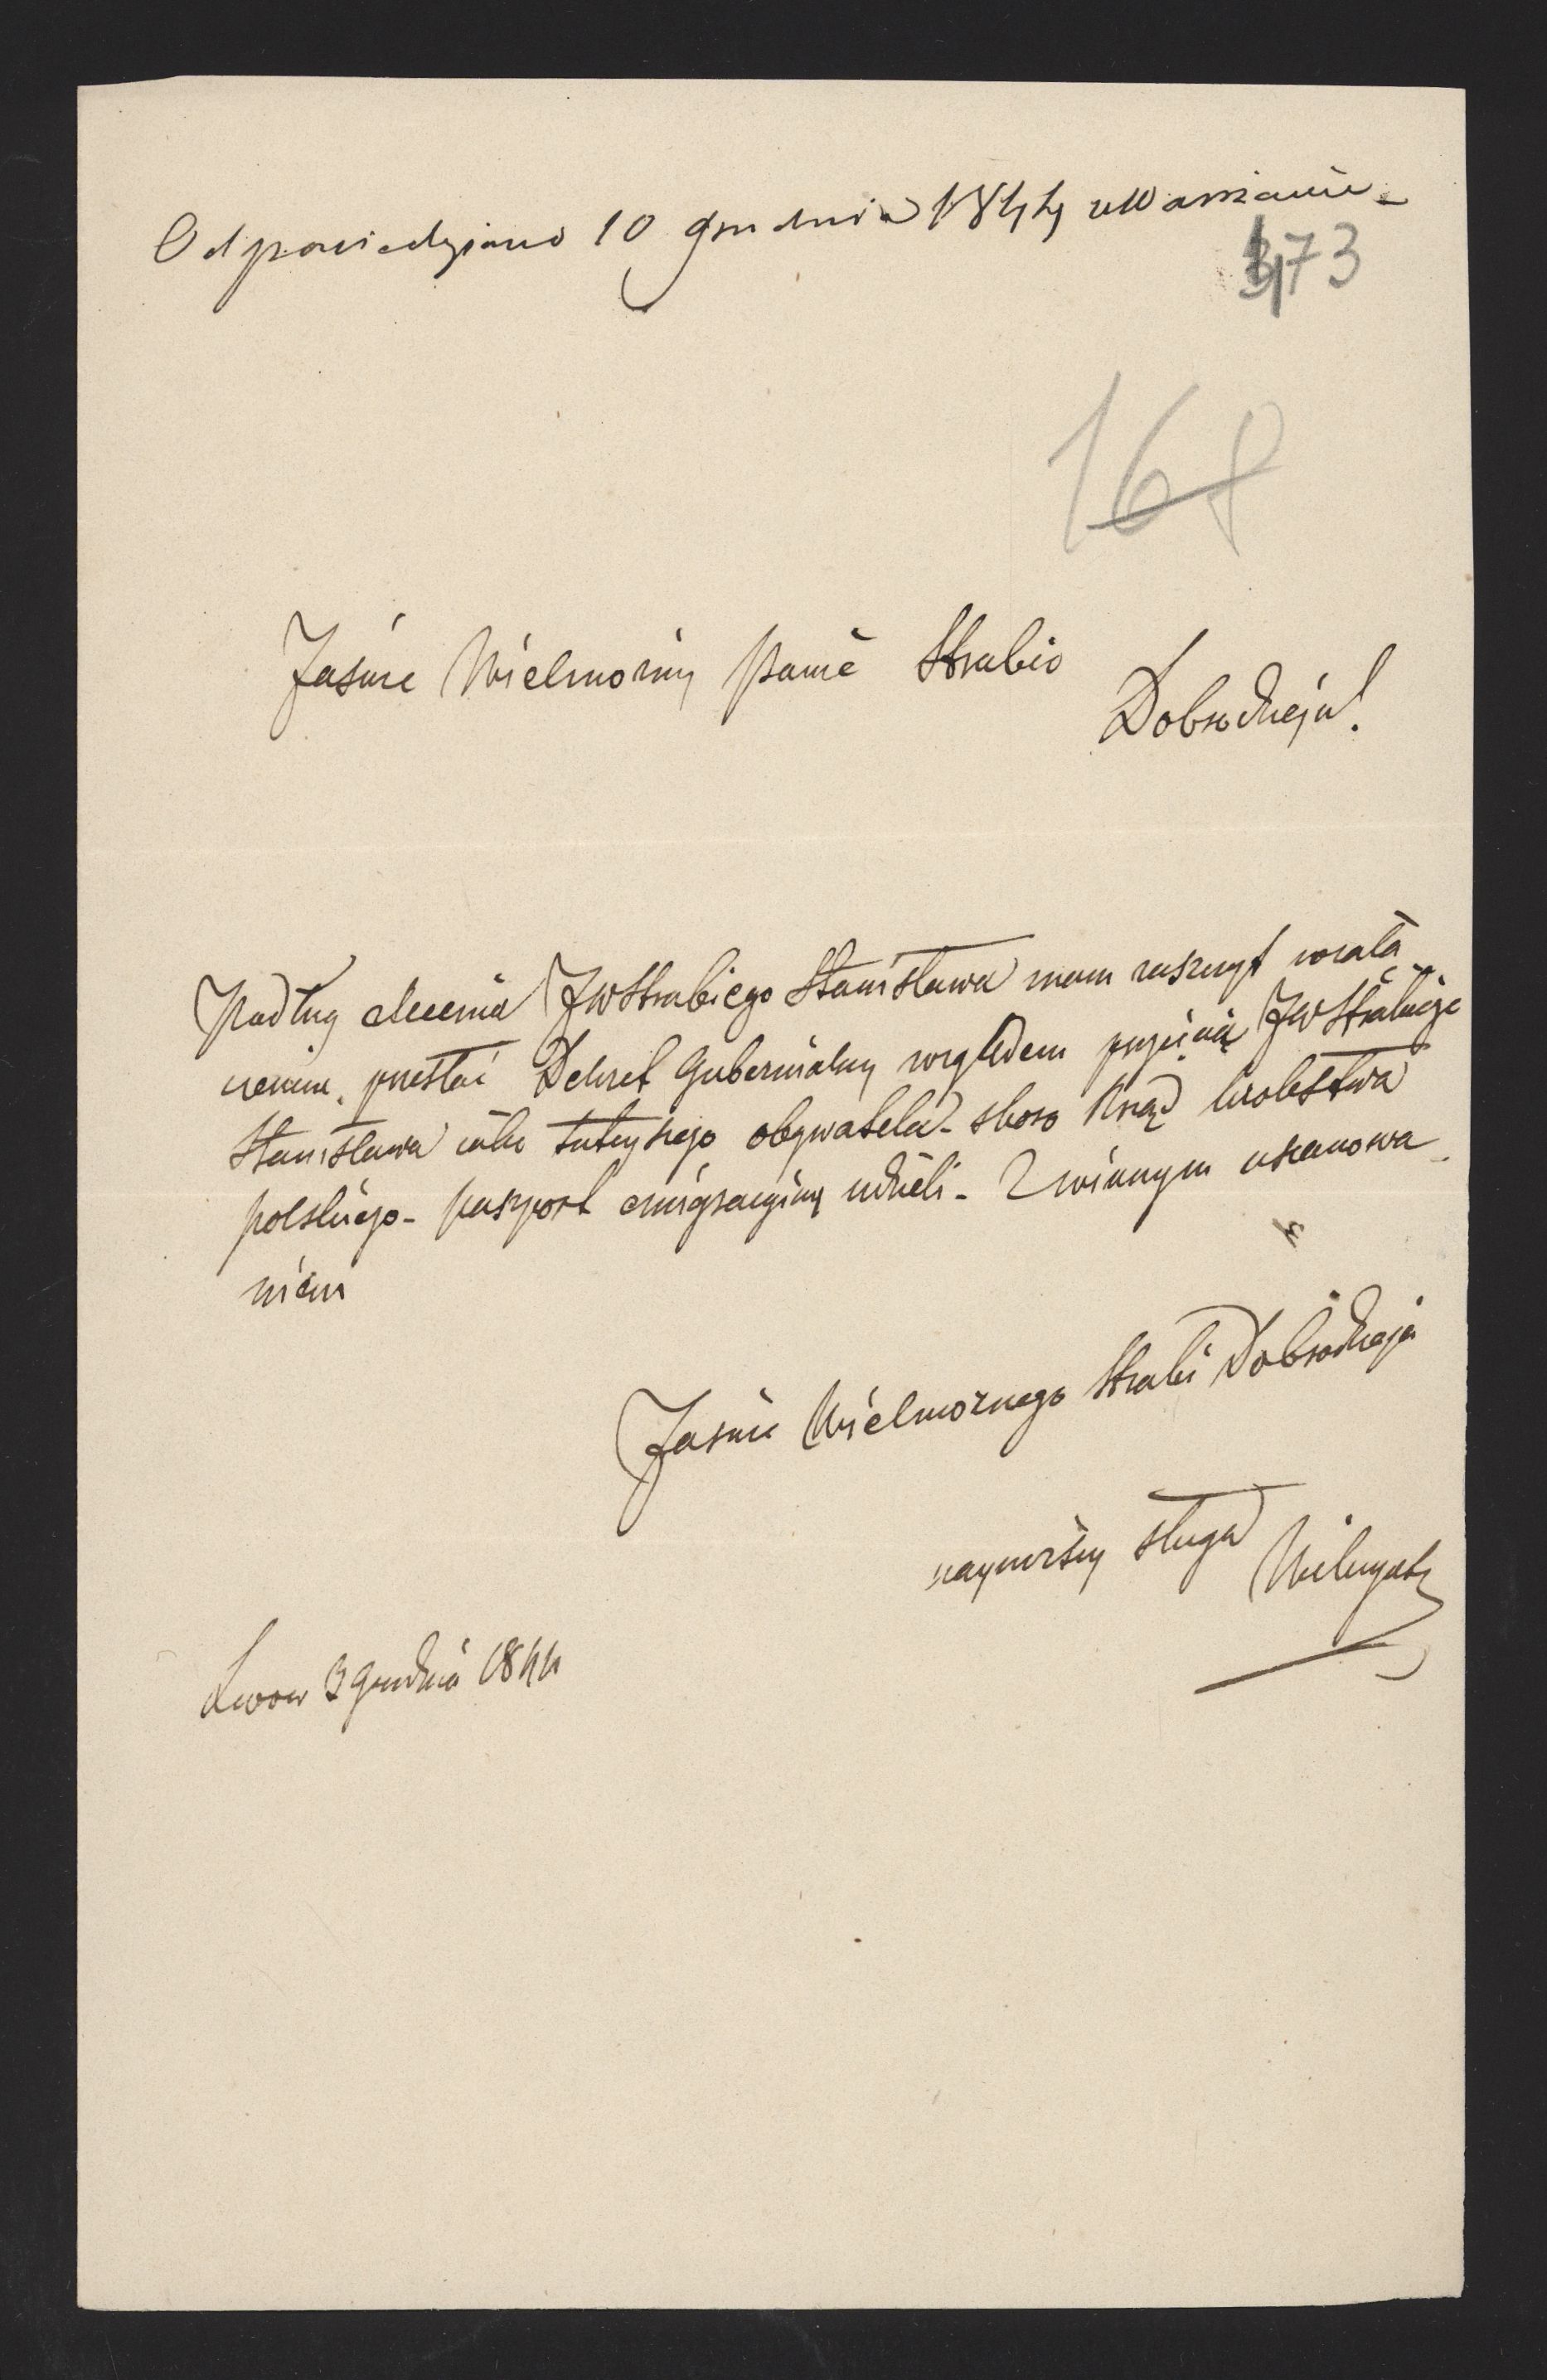 Odpowiedziano 10 grudnia 1844 z Warszawie
173
168
Jaśnie Wielmożny Panie Hrabio
Dobrodzieju!
Podług zlecenia JWHrabiego Stanisława mam zaszczyt w załą
czeniu przesłać Dekret Gubernialny względem przyjęcia JWHrabiego
Stanisława jako tutejszego obywatela - skoro Rząd Królestwa
polskiego - paszport emigracyjny udzieli - Z winnym uszanowa
niem
Jaśnie Wielmożnego Hrabi Dobrodzieja
nayniższy sługa
Lwow 3 grudnia 1844